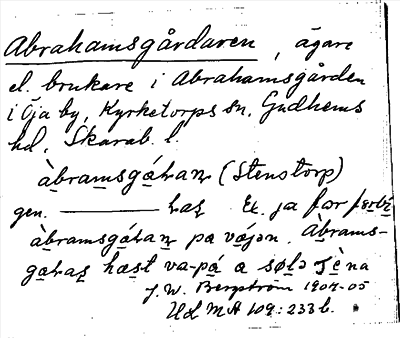 Abrahamsgårdaren, ägare
el. brukare i Abrahamsgården
i Öja by, Kyrketorps sn, Gudhems
hd, Skarab. l.
àbramsgáɫaɳ (Stenstorp)
gen. ——— Ex. ja fær
àbramsgáɫaɳ pa vájən. Àbrams-
hæst va-pá a
J. W. Bergström 1904-05
ULMA 109:233 b.